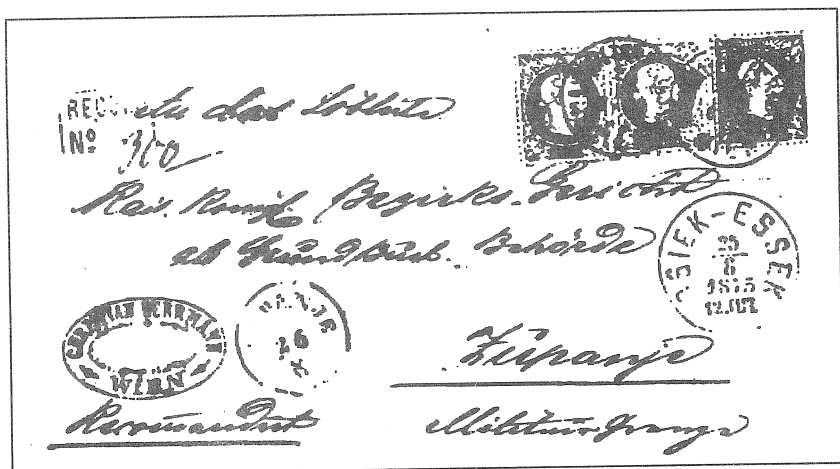 RECOM
An das Löbliche
Nº 360
Kais. Königl. Bezirks-Gericht
als Grundbuch-Behörde
OSIEK-ESSEK
25
8
1875
CHRISTIAN HERRMANN
WIEN
26
Županje
Recomandirt
Militair Grenze